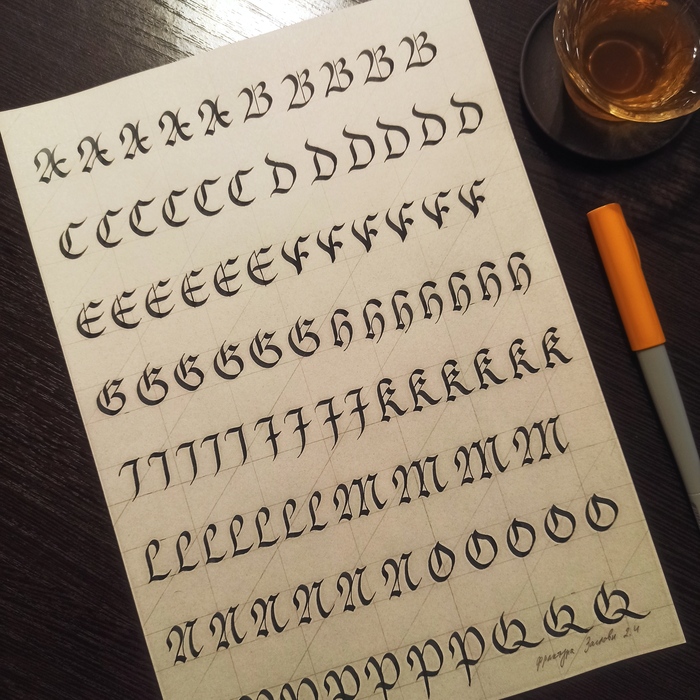 AAAAABBBBB
CCCCCCDDDDDD
EEEEEEFFFFFF
GGGGGGHHHHHHH
IIIIIJJJJKKKKKK
LLLLLLLMMMM
NNNNNNOOOOO
PPPPPPQQQ
фрактура 24